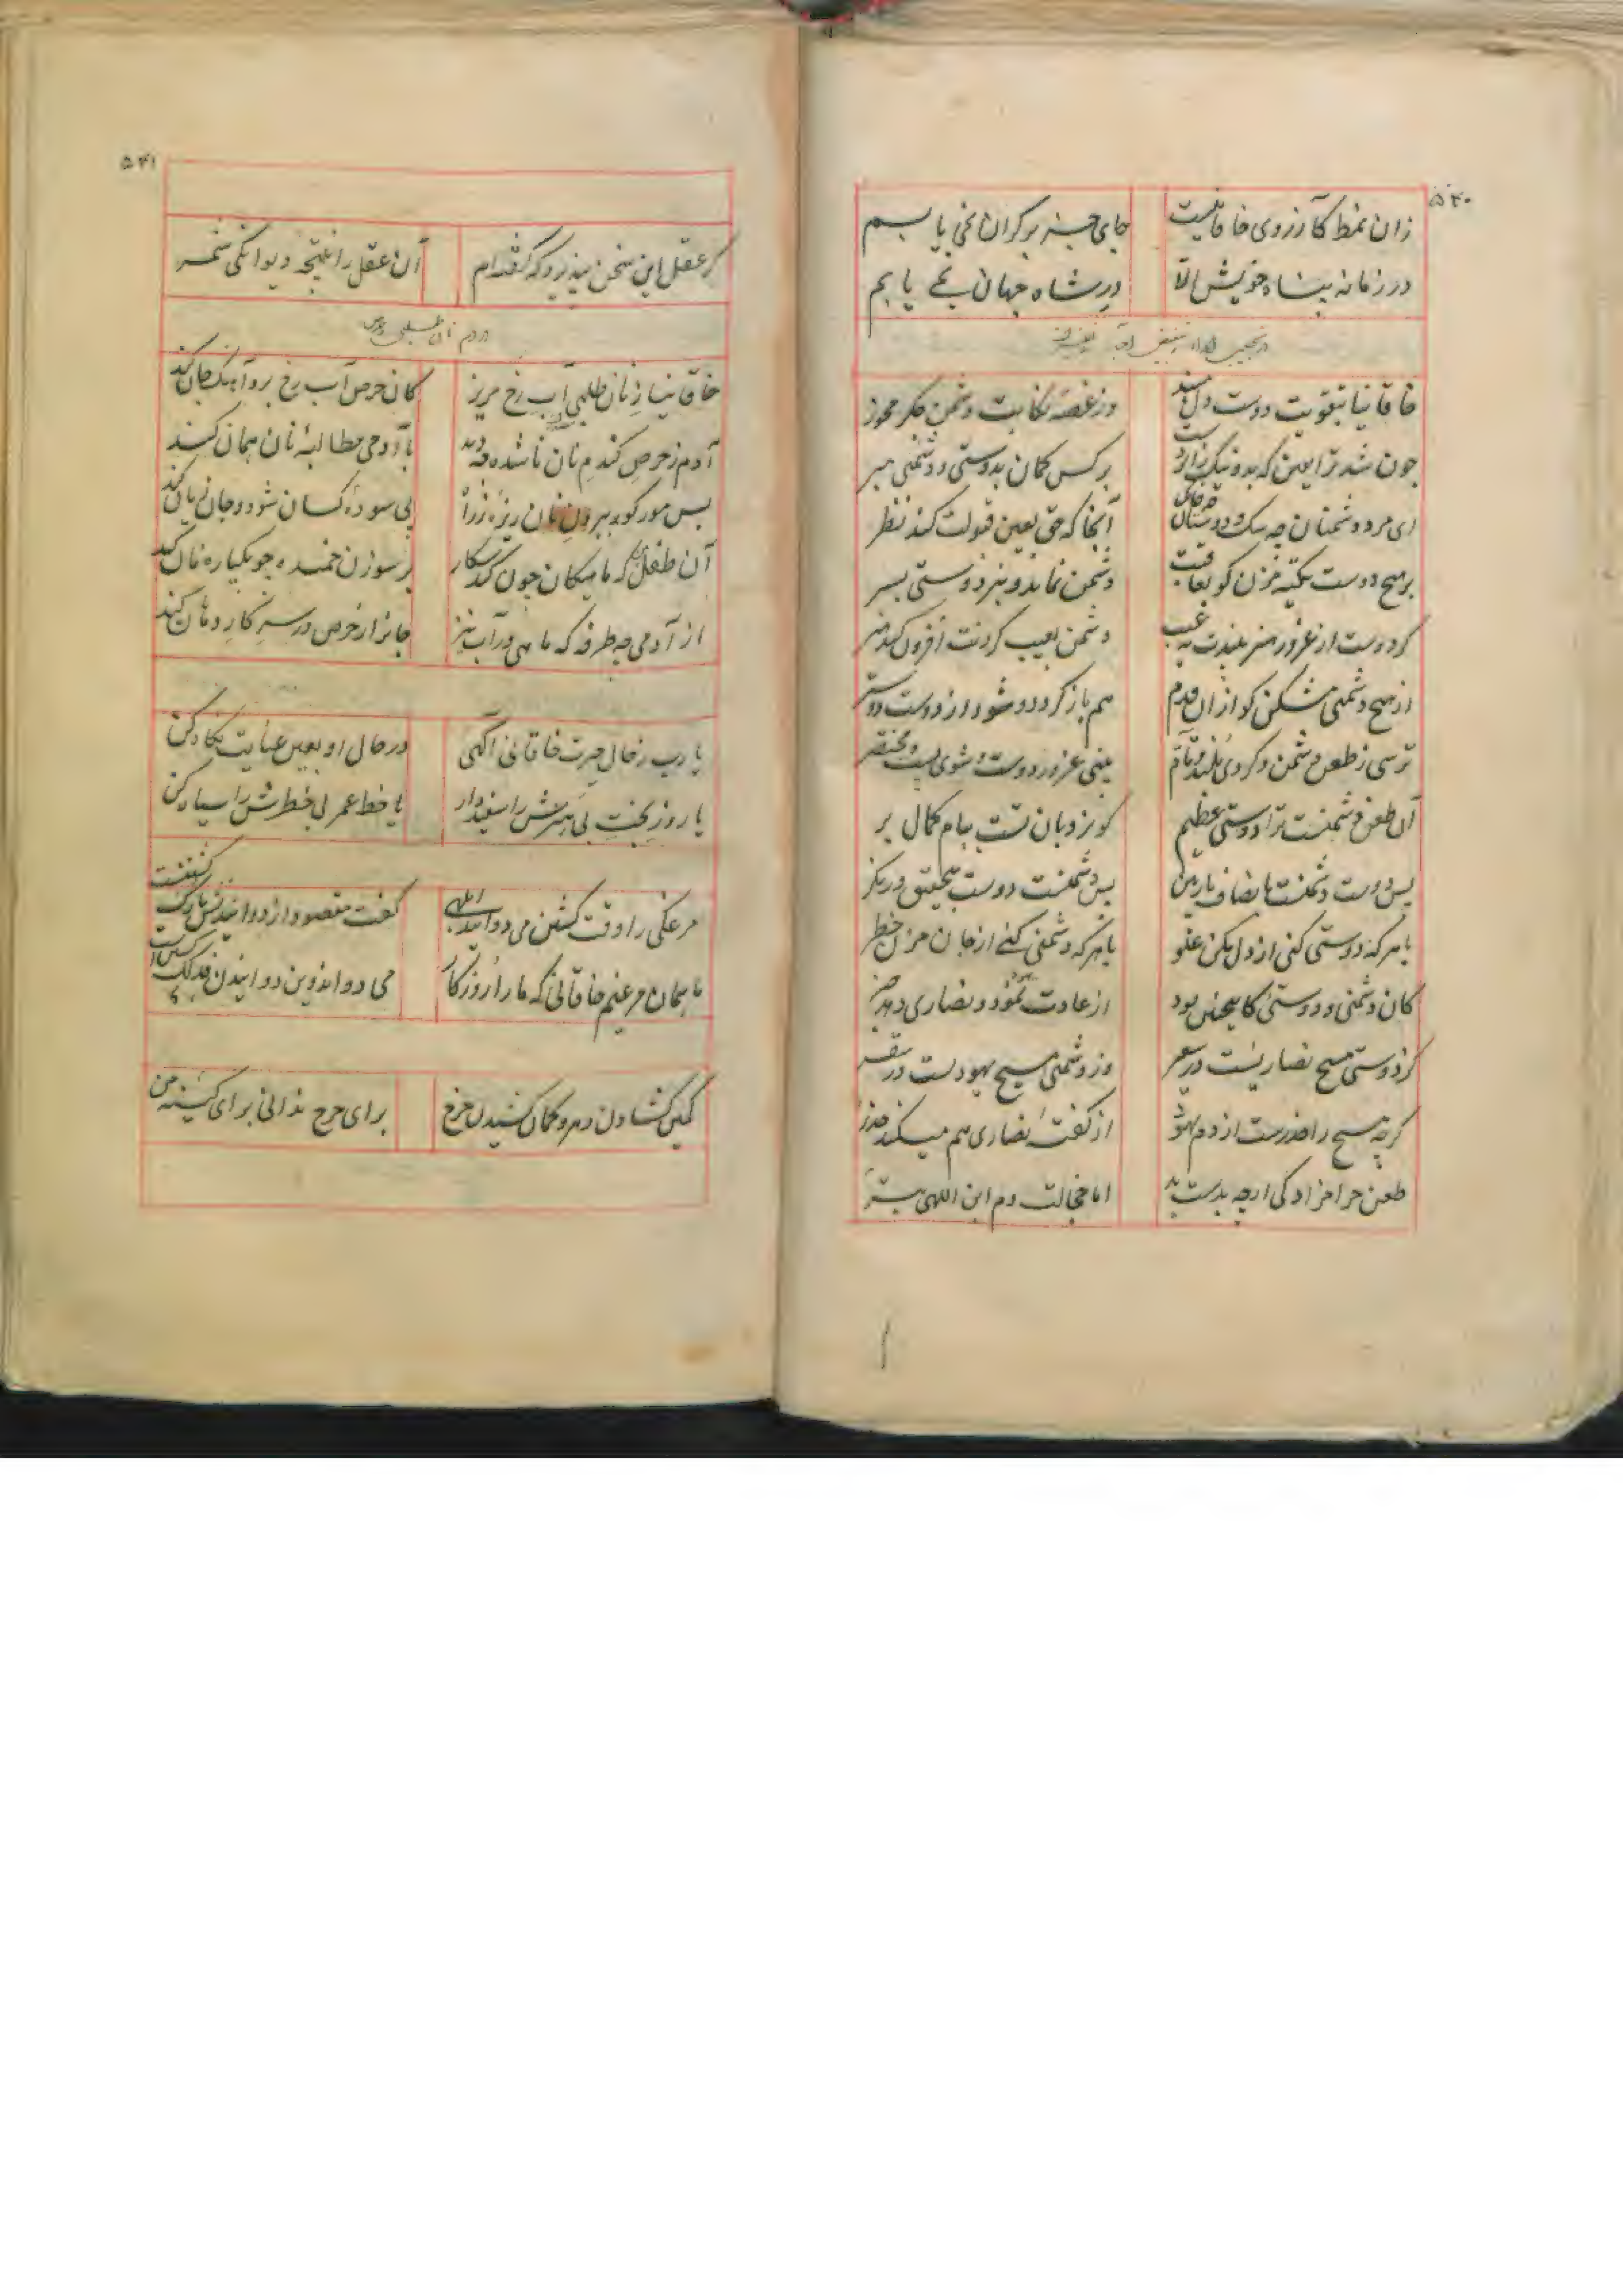 ۵۴۰
زان نمط کآرزوی خاقانیست جای جز بر کران نمی یابم
در زمانه پناه خویش الا در شاه جهان نمی یابم
خاقانیا بتقویت دوست دل مبند وز غصه نکایت دشمن جگر مخور
چون شد ترا یقین که بد و نیک ز ایزدست بر کس گمان بدوستی و دشمنی مبر
ای مرد دشمنان چه و دوستان آنجا که حق بعین قبولت کند نظر
بر هیچ دوست تکیه مزن کو بعاقبت دشمن نماید و نبرد دوستی بسر
گر دوست از غرور هنر بیندت نه عیب دشمن بعیب کردنت افزون کند هنر
از هیچ دشمنی مشکن کو از آن قدم هم باز گردد و شود از دوست دوستر
ترسی ز طعن دشمن و گردی بلند نام بینی غرور دوست و شوی پست و مختصر
آن طعن دشمنست ترا دوستی عظیم کو نردبان تست ببام کمال بر
پس دوست دشمنست بانصاف باز بین پس دشمنست دوست بتحقیق در نگر
با هر که دوستی کنی از دل مکن غلو با هر که دشمنی کنی از جان مزن خطر
کان دشمنی و دوستی کاینچنین بود از عادت یهود و نصاری دهد خبر
کز دوستی مسیح نصاریست در سعر وز دشمنی مسیح یهودست در سقر
گرچه مسیح را حذرست از دم یهود از گفت نصاری هم میکند حذر
طعن حرامزادگی ارچه بدست بد اما خجالت دم ابن اللهی بتر
۵۴۱
گر عقل این سخن نپذیرد که گفته‌ام آن عقل را نتیجه دیوانگی شمر
در ذم نان طلبی و حرص
خاقانیا ز نان طلبی آب رخ مریز کان حرص آب رخ برد آهنگ جان کند
آدم ز حرص گندم نان ناشده چه دید با آدمی مطالبه نان همان کند
بس مور کو ببردن نان ریزه ز راه پی سوده کسان شود و جان زیان کند
آن طفل بین که ماهیکان چون کند شکار بر سوزن خمیده چو یکپاره نان کند
از آدمی چه طرفه که ماهی در آب نیز جان را ز حرص در سر کار دهان کند
یا رب ز حال حیرت خاقانی آگهی در حال او بعین عنایت نگاه کن
یا روز بخت بی هنرش را سفید دار یا خط عمر بی خطرش را سیاه کن
مرغکی را وقت کشتن می دوانید ابلهی گفت مقصود از دوانیدنش نازک گشتنست
ما همان مرغیم خاقانی که ما را روزگار می دواند وین دوانیدن فذلک کشتن است
کمین گشادن دهر و کمان کشیدن چرخ برای چرخ ندانی برای کینه من